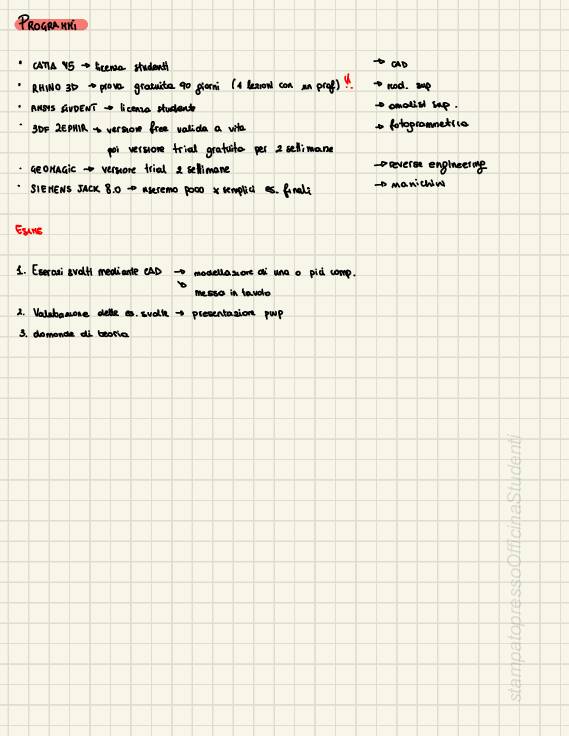 PROGRAMMI
• CATIA V5 → licenza studenti → CAD
• RHINO 3D → prova gratuita 90 giorni (1 lezioni con un prof) !! → mod. sup
• ANSYS STUDENT → licenza studente → analisi sup.
• 3DF ZEPHIR → versione free valida a vita → fotogrammetria
poi versione trial gratuita per 2 settimane
• GEOMAGIC → versione trial 2 settimane → reverse engineering
• SIEMENS JACK 8.0 → useremo poco x semplici es. finali → manichini
ESAME
1. Esercizi svolti mediante CAD → modellazione di una o più comp.
↘ messa in tavola
2. Valutazione delle es. svolte → presentazione pwp
3. domande di teoria
stampatopressoOfficinaStudenti